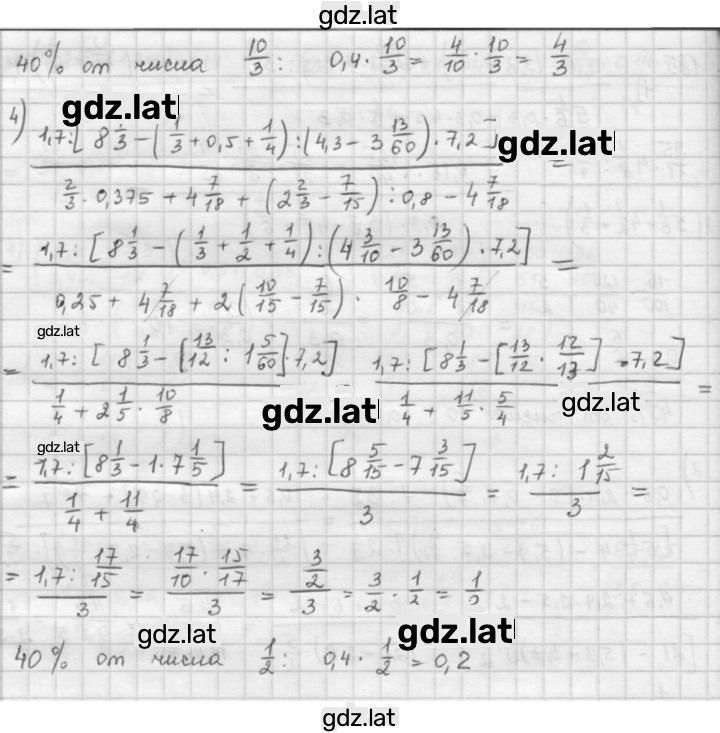 gdz.lat
40% от числа 10/3 : 0,4 · 10/3 = 4/10 · 10/3 = 4/3
gdz.lat
4) 1,7 : [ 8 1/3 − ( 1/3 + 0,5 + 1/4 ) : ( 4,3 − 3 13/60 ) · 7,2 ] / 2/3 · 0,375 + 4 7/18 + ( 2 2/3 − 7/15 ) : 0,8 − 4 7/18 =
gdz.lat
= 1,7 : [ 8 1/3 − ( 1/3 + 1/2 + 1/4 ) : ( 4 3/10 − 3 13/60 ) · 7,2 ] / 0,25 + 4 7/18 + 2 ( 10/15 − 7/15 ) · 10/8 − 4 7/18 =
gdz.lat
= 1,7 : [ 8 1/3 − [ 13/12 : 1 5/60 ] · 7,2 ] / 1/4 + 2 1/5 · 10/8 1,7 : [ 8 1/3 − [ 13/12 · 12/13 ] · 7,2 ] / 1/4 + 11/5 · 5/4 =
gdz.lat
gdz.lat
gdz.lat
= 1,7 : [ 8 1/3 − 1 · 7 1/5 ] / 1/4 + 11/4 = 1,7 : [ 8 5/15 − 7 3/15 ] / 3 = 1,7 : 1 2/15 / 3 =
= 1,7 : 17/15 / 3 = 17/10 · 15/17 / 3 = 3/2 / 3 = 3/2 · 1/2 = 1/2
gdz.lat
gdz.lat
40% от числа 1/2 : 0,4 · 1/2 = 0,2
gdz.lat